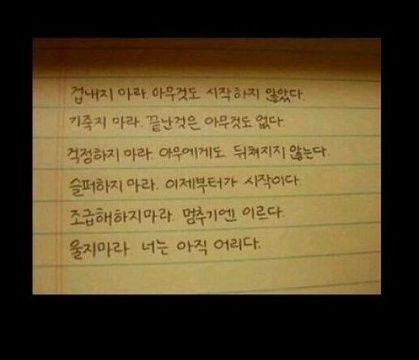 겁내지 마라. 아무것도 시작하지 않았다.
기죽지 마라. 끝난것은 아무것도 없다.
걱정하지 마라. 아무에게도 뒤쳐지지 않는다.
슬퍼하지 마라. 이제부터가 시작이다.
조급해하지마라. 멈추기엔 이르다.
울지마라. 너는 아직 어리다.